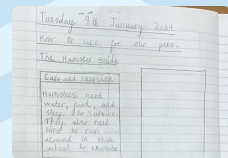 Tuesday 9th January 2024
How to care for our pets.
The Hamster Guide
Care and exercise.
Hamsters need
water, food, and
sleep to survive.
They also need
time to run
around in their
wheel to exercise